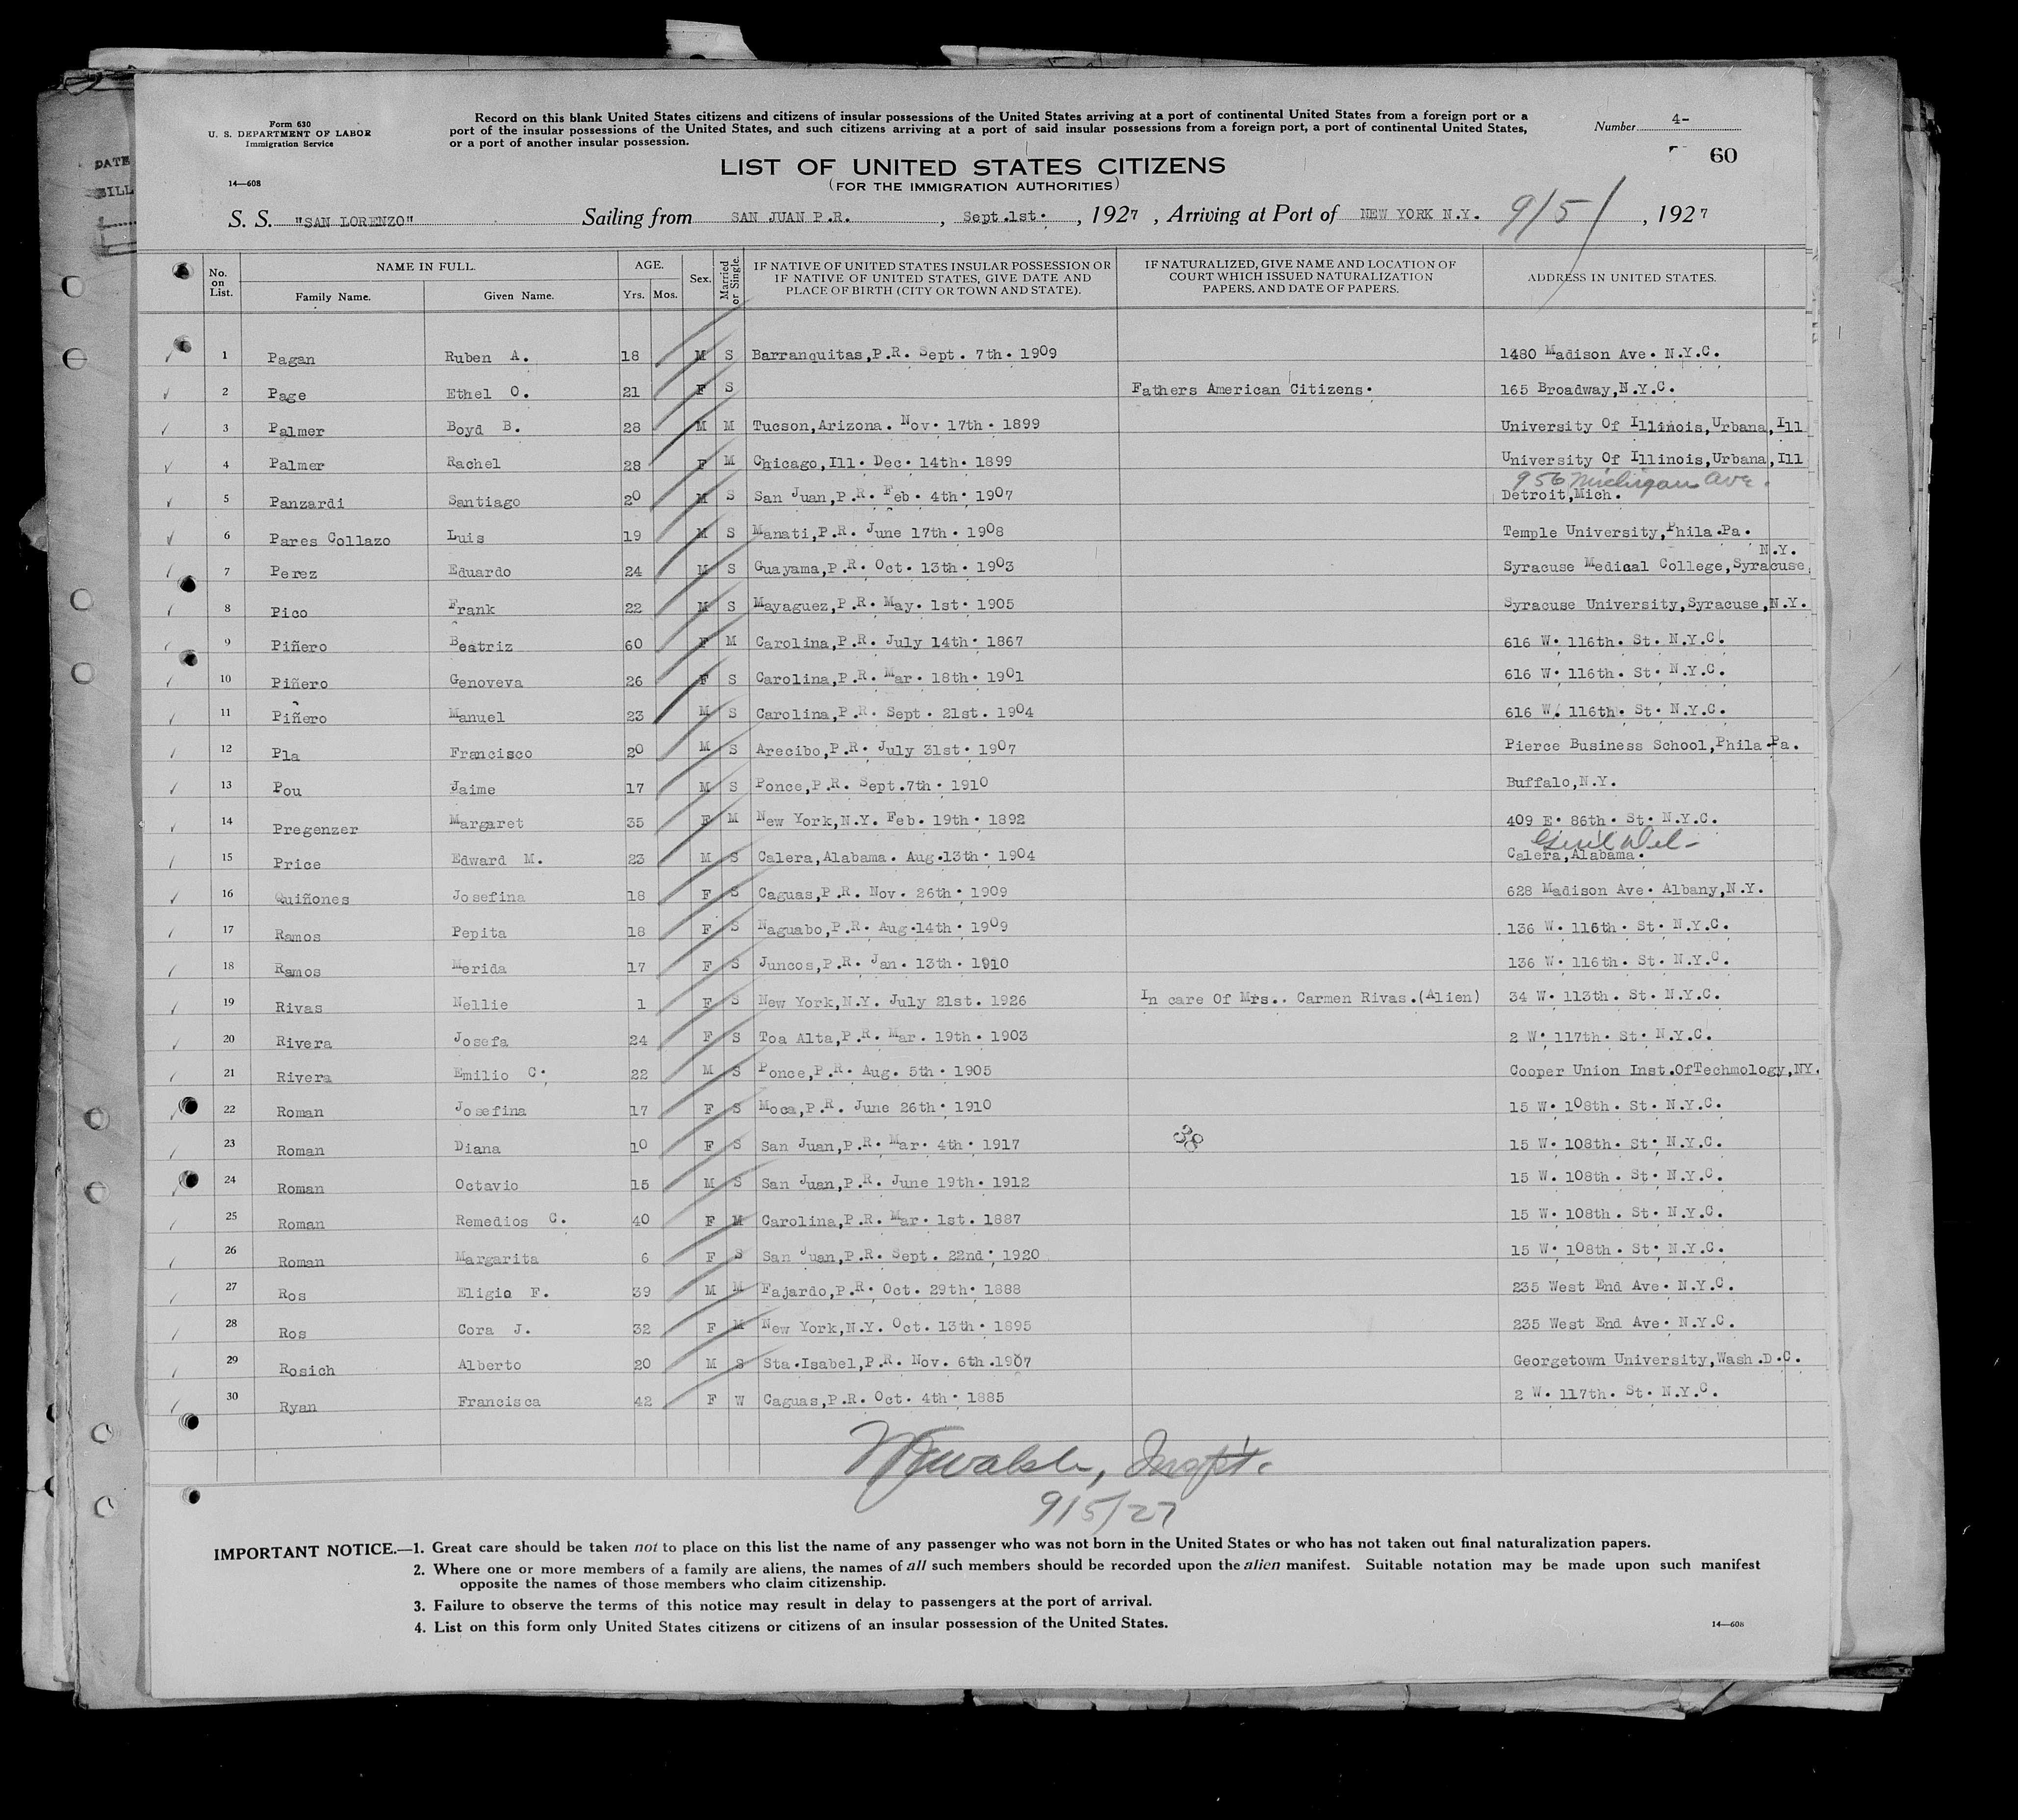 Form 630
U. S. DEPARTMENT OF LABOR
Immigration Service
14—608
Record on this blank United States citizens and citizens of insular possessions of the United States arriving at a port of continental United States from a foreign port or a
port of the insular possessions of the United States, and such citizens arriving at a port of said insular possessions from a foreign port, a port of continental United States,
or a port of another insular possession.
Number 4-
60
DATE
LIST OF UNITED STATES CITIZENS
(FOR THE IMMIGRATION AUTHORITIES)
S. S. "SAN LORENZO" Sailing from SAN JUAN P.R., Sept.1st., 1927, Arriving at Port of NEW YORK N.Y. 9/5/, 1927
No. on List. NAME IN FULL. Family Name. Given Name. AGE. Yrs. Mos. Sex. Married or Single. IF NATIVE OF UNITED STATES INSULAR POSSESSION OR IF NATIVE OF UNITED STATES, GIVE DATE AND PLACE OF BIRTH (CITY OR TOWN AND STATE). IF NATURALIZED, GIVE NAME AND LOCATION OF COURT WHICH ISSUED NATURALIZATION PAPERS, AND DATE OF PAPERS. ADDRESS IN UNITED STATES.
1 Pagan Ruben A. 18 M S Barranquitas,P.R. Sept. 7th. 1909 1480 Madison Ave. N.Y.C.
2 Page Ethel O. 21 F S Fathers American Citizens. 165 Broadway,N.Y.C.
3 Palmer Boyd B. 28 M M Tucson,Arizona. Nov. 17th. 1899 University Of Illinois,Urbana,Ill
4 Palmer Rachel 28 F M Chicago,Ill. Dec. 14th. 1899 University Of Illinois,Urbana,Ill
956 Michigan Ave.
5 Panzardi Santiago 20 M S San Juan,P.R. Feb. 4th. 1907 Detroit,Mich.
6 Pares Collazo Luis 19 M S Manati,P.R. June 17th. 1908 Temple University,Phila.Pa.
7 Perez Eduardo 24 M S Guayama,P.R. Oct. 13th. 1903 Syracuse Medical College,Syracuse, N.Y.
8 Pico Frank 22 M S Mayaguez,P.R. May. 1st. 1905 Syracuse University,Syracuse,N.Y.
9 Piñero Beatriz 60 F M Carolina,P.R. July 14th. 1867 616 W. 116th. St. N.Y.C.
10 Piñero Genoveva 26 F S Carolina,P.R. Mar. 18th. 1901 616 W. 116th. St. N.Y.C.
11 Piñero Manuel 23 M S Carolina,P.R. Sept. 21st. 1904 616 W. 116th. St. N.Y.C.
12 Pla Francisco 20 M S Arecibo,P.R. July 31st. 1907 Pierce Business School,Phila.Pa.
13 Pou Jaime 17 M S Ponce,P.R. Sept.7th. 1910 Buffalo,N.Y.
14 Pregenzer Margaret 35 F M New York,N.Y. Feb. 19th. 1892 409 E. 86th. St. N.Y.C.
15 Price Edward M. 23 M S Calera,Alabama. Aug.13th. 1904 Calera,Alabama.
16 Quiñones Josefina 18 F S Caguas,P.R. Nov. 26th. 1909 628 Madison Ave. Albany,N.Y.
17 Ramos Pepita 18 F S Naguabo,P.R. Aug.14th. 1909 136 W. 116th. St. N.Y.C.
18 Ramos Merida 17 F S Juncos,P.R. Jan. 13th. 1910 136 W. 116th. St. N.Y.C.
19 Rivas Nellie 1 F S New York,N.Y. July 21st. 1926 In care Of Mrs.. Carmen Rivas.(Alien) 34 W. 113th. St. N.Y.C.
20 Rivera Josefa 24 F S Toa Alta,P.R. Mar. 19th. 1903 2 W. 117th. St. N.Y.C.
21 Rivera Emilio C. 22 M S Ponce,P.R. Aug. 5th. 1905 Cooper Union Inst.OfTechmology,NY.
22 Roman Josefina 17 F S Moca,P.R. June 26th. 1910 15 W. 108th. St. N.Y.C.
23 Roman Diana 10 F S San Juan,P.R. Mar. 4th. 1917 38 15 W. 108th. St. N.Y.C.
24 Roman Octavio 15 M S San Juan,P.R. June 19th. 1912 15 W. 108th. St. N.Y.C.
25 Roman Remedios C. 40 F M Carolina,P.R. Mar. 1st. 1887 15 W. 108th. St. N.Y.C.
26 Roman Margarita 6 F S San Juan,P.R. Sept. 22nd. 1920 15 W. 108th. St. N.Y.C.
27 Ros Eligio F. 39 M M Fajardo,P.R. Oct. 29th. 1888 235 West End Ave. N.Y.C.
28 Ros Cora J. 32 F M New York,N.Y. Oct. 13th. 1895 235 West End Ave. N.Y.C.
29 Rosich Alberto 20 M S Sta.Isabel,P.R. Nov. 6th.1907 Georgetown University,Wash.D.C.
30 Ryan Francisca 42 F W Caguas,P.R. Oct. 4th. 1885 2 W. 117th. St. N.Y.C.
Walsh, Insp't.
9/5/27
IMPORTANT NOTICE.—1. Great care should be taken not to place on this list the name of any passenger who was not born in the United States or who has not taken out final naturalization papers.
2. Where one or more members of a family are aliens, the names of all such members should be recorded upon the alien manifest. Suitable notation may be made upon such manifest
opposite the names of those members who claim citizenship.
3. Failure to observe the terms of this notice may result in delay to passengers at the port of arrival.
4. List on this form only United States citizens or citizens of an insular possession of the United States.
14—608